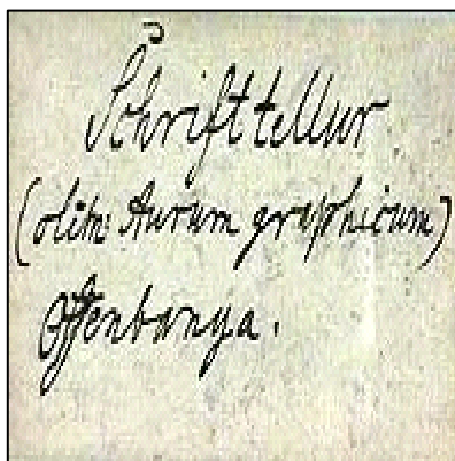 Schrifttellur
(olim: Aurum graphicum)
Offenbanya.